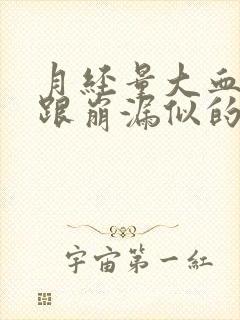 月经量大血
跟崩漏似的
宇宙第一红